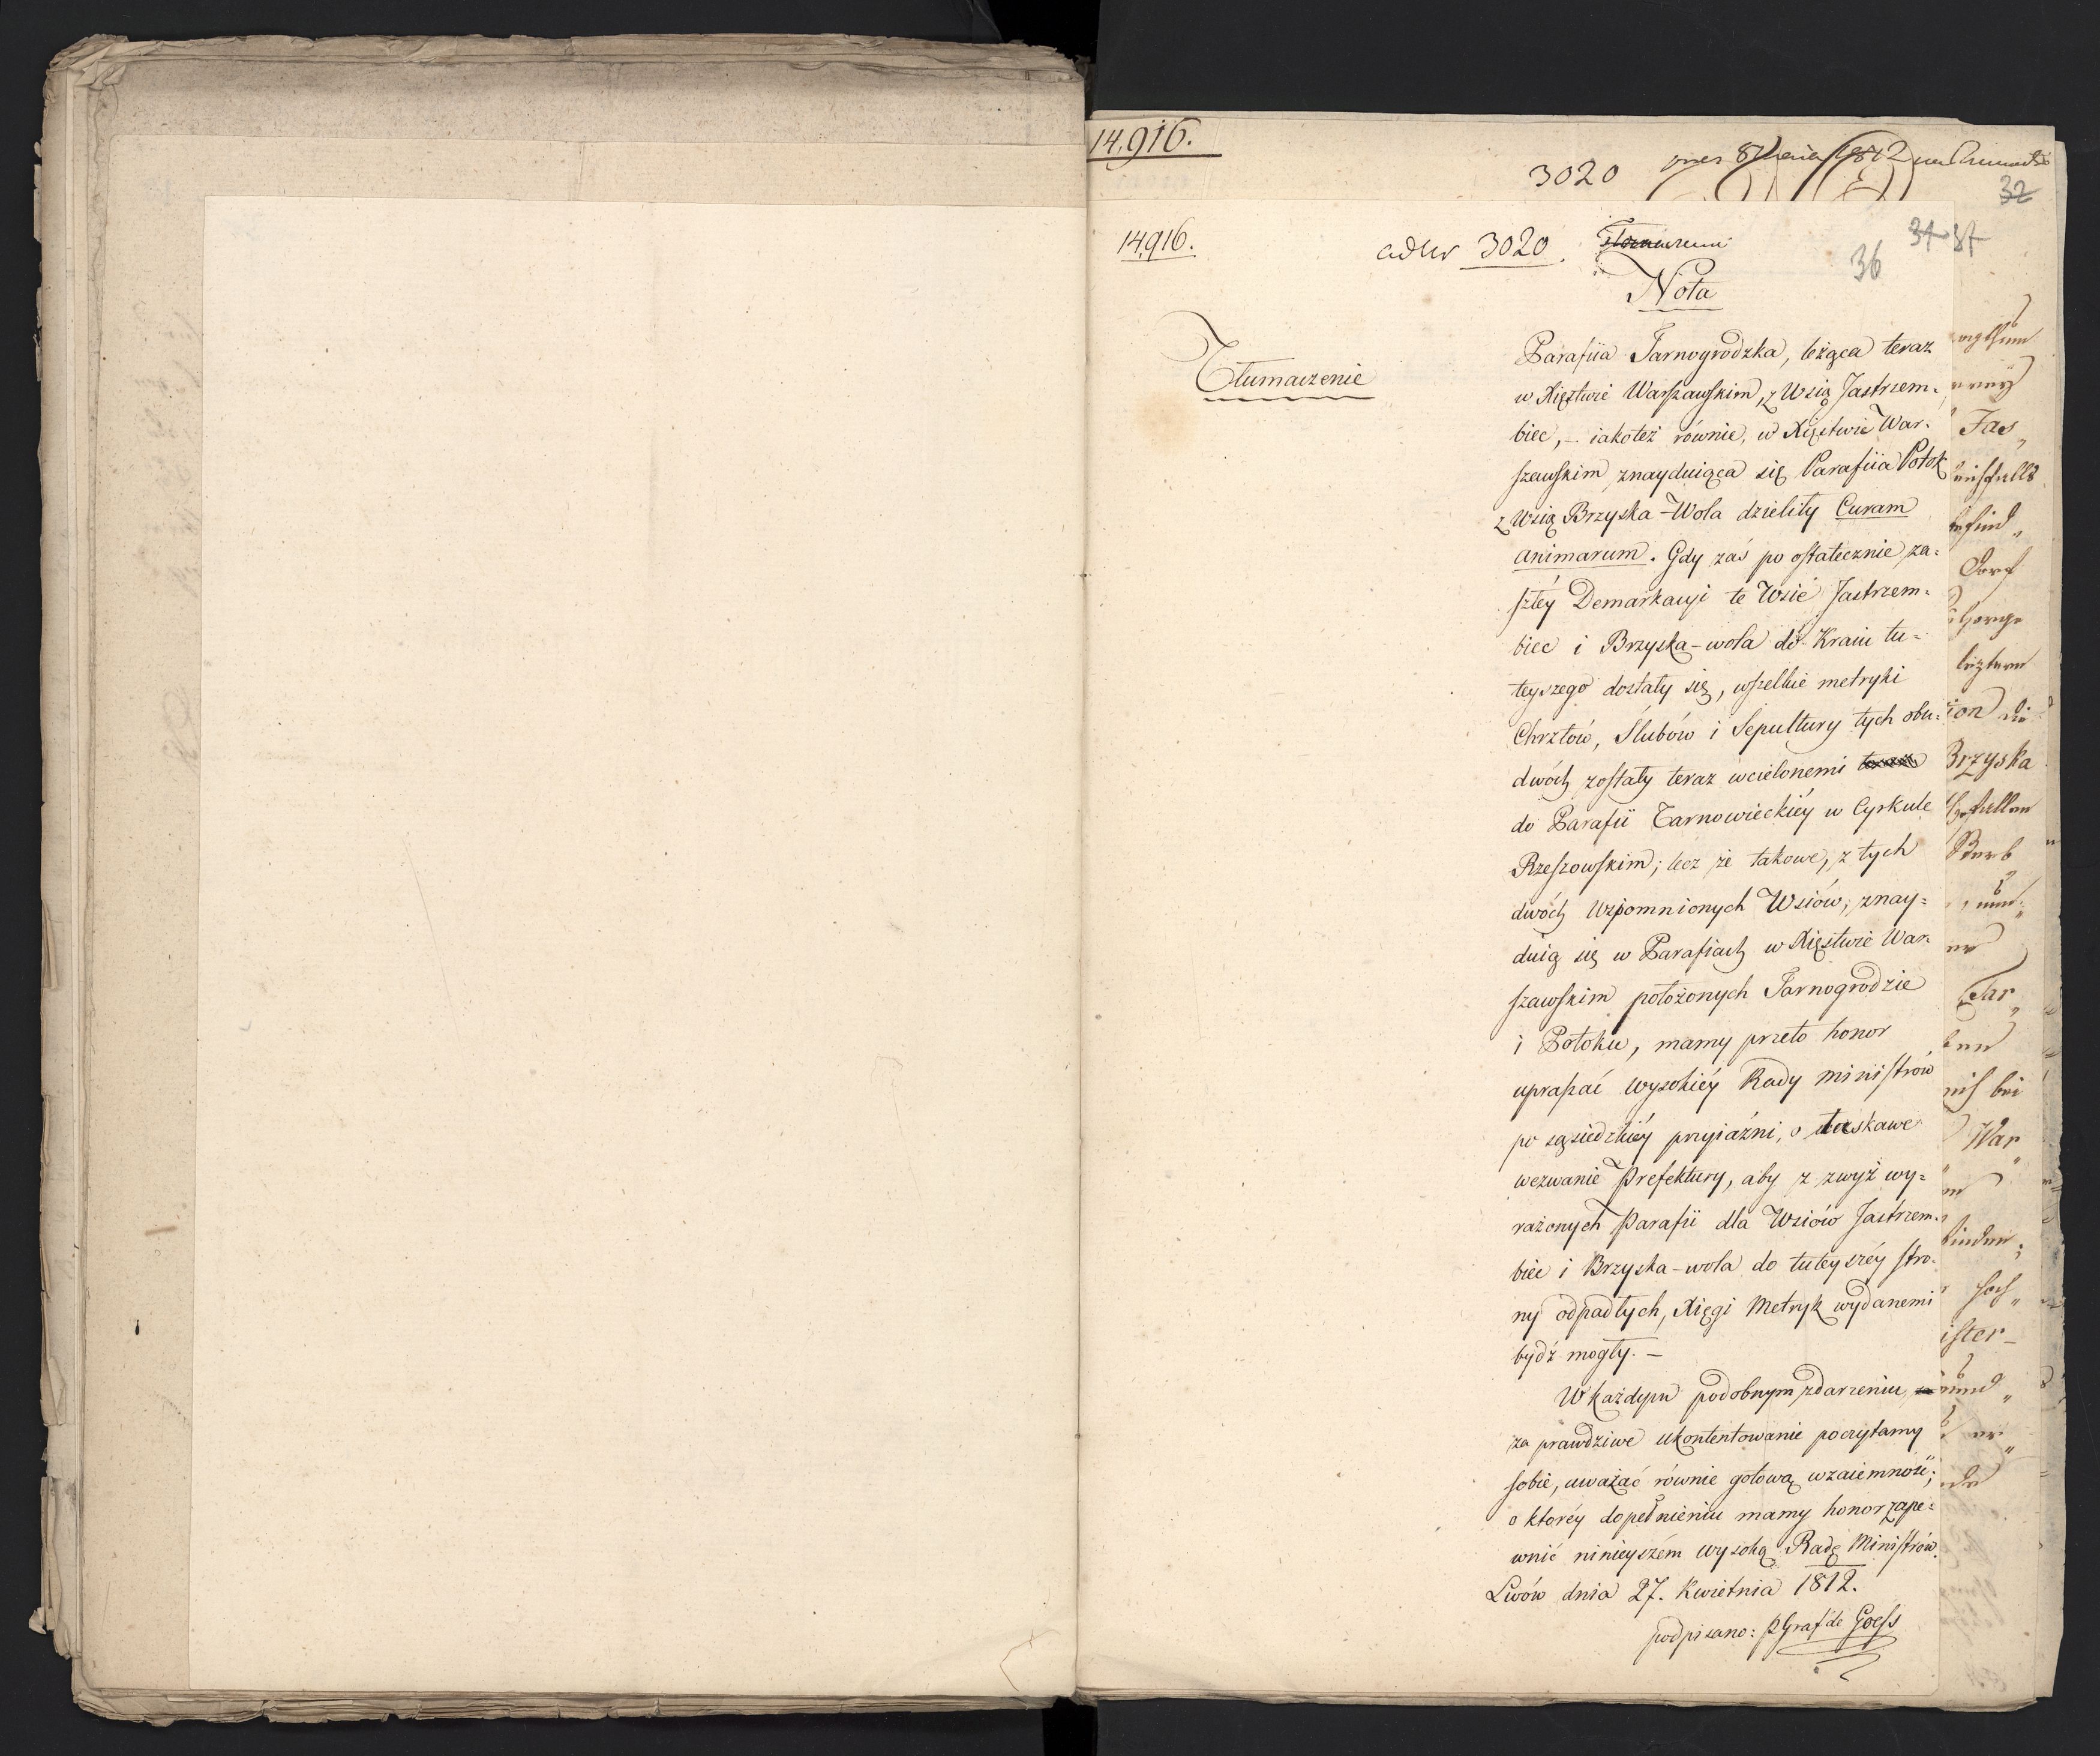 14,916.
3020
32
14,916.
ad Nr 3020.
36
37 37
Nota
Tłumaczenie
Parafiia Tarnogrodzka, leżąca teraz
w Xięztwie Warszawskim, z Wsią Jastrzem-
biec, – iakoteż równie, w Xięstwie War-
szawskim znayduiąca się Parafiia Potok
z Wsią Brzyska-Wola dzieliły Curam
animarum. Gdy zaś po ostatecznie za=
szłey Demarkacyi te Wsie Jastrzem-
biec i Brzyska-wola do Kraiu tu=
teyszego dostały się, wszelkie metryki
Chrztów, Ślubów i Sepultury tych obu=
dwóch zostały teraz wcielonemi
do Parafii Tarnowieckiéy w Cyrkule
Rzeszowskim; lecz że takowe, z tych
dwóch wzpomnionych Wsiów, znay=
duią się w Parafiach w Xięstwie War-
szawskim położonych Tarnogrodzie
i Potoku, mamy przeto honor
upraszać wysokiéy Rady Ministrów
po sąsiedzkiéy przyiaźni, o łaskawe
wezwanie Prefektury, aby z zwyż wy=
rażonych Parafii dla Wsiów Jastrzem-
biec i Brzyska-wola do tuteyszéy stro-
ny odpadłych, Xięgi Metryk wydanemi
bydź mogły. –
W każdym podobnym zdarzeniu,
za prawdziwe ukontentowanie poczytamy
sobie, uważać równie gotową wzaiemność;
o któréy dopełnieniu mamy honor zape=
wnić ninieyszém wysoką Radę Ministrów.
Lwów dnia 27. Kwietnia 1812.
podpisano: P Graf de Goess
Jas„
Dorf
ion die
Brzyska
Tar„
War„
ister–